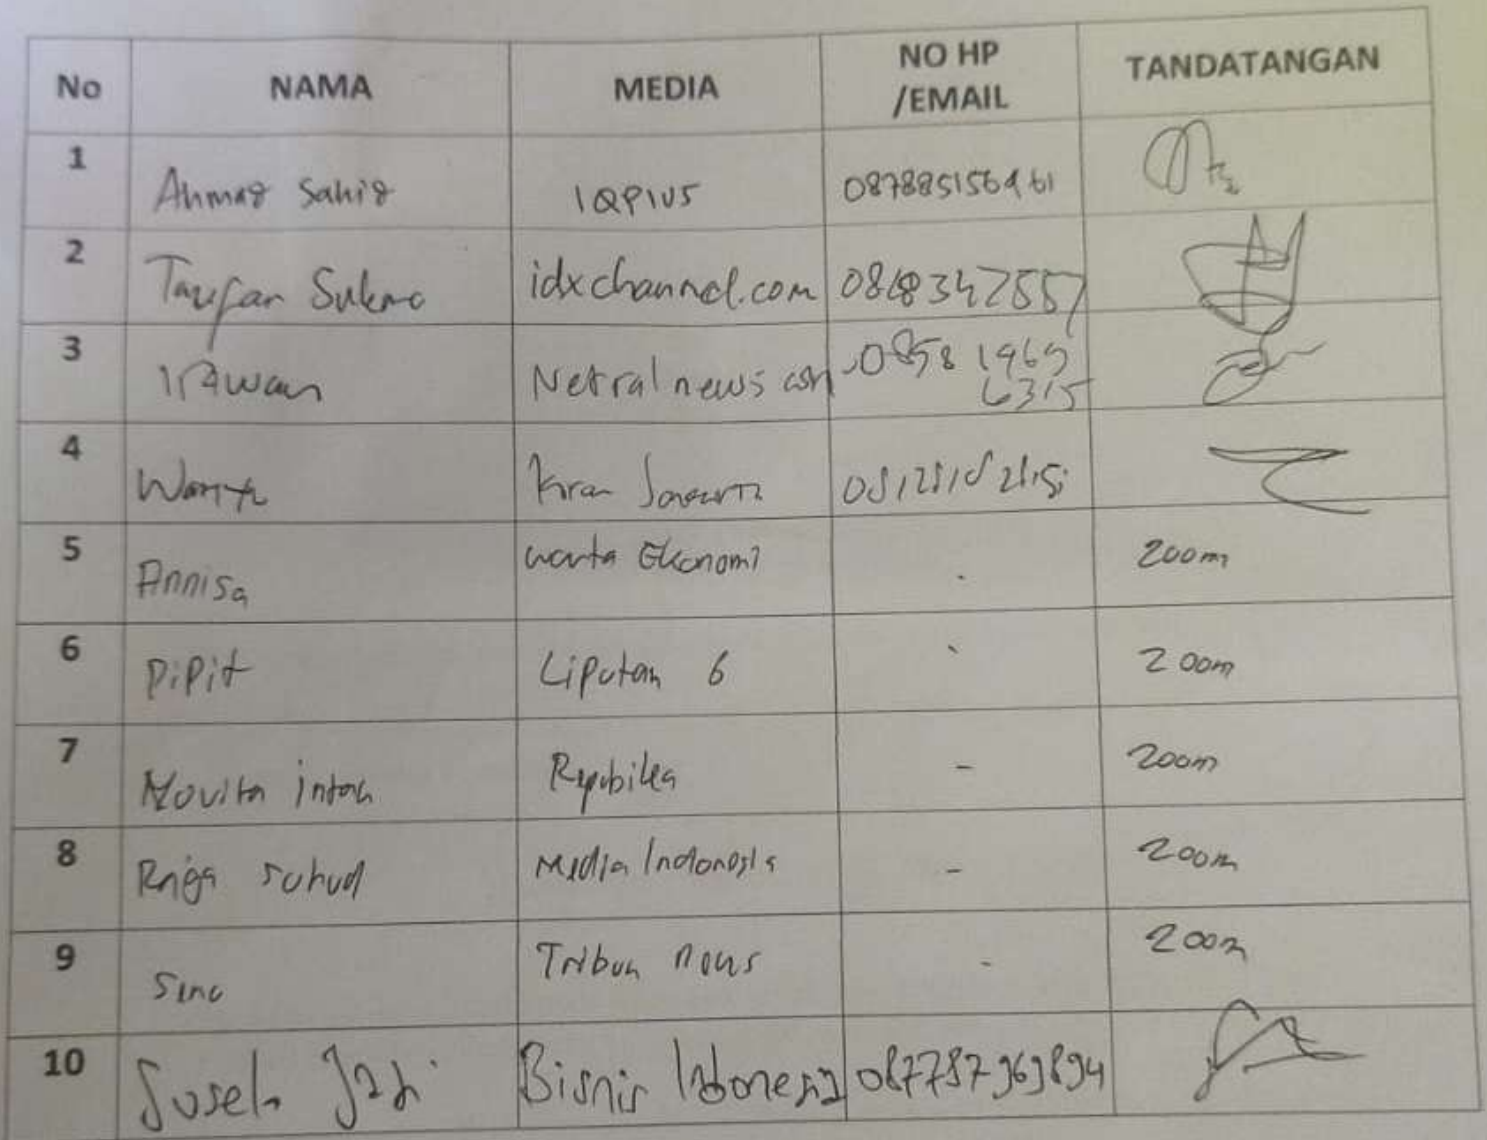 No NAMA MEDIA NO HP /EMAIL TANDATANGAN
1 Ahmad Sahid IQPlus
2 Taufan Sukma idxchannel.com
3 Irawan Netralnews com 0858 1969
6315
4 Koran
5 Annisa Warta Ekonomi . Zoom
6 Pipit Liputan 6 Zoom
7 Novita intan Republika - Zoom
8 Raja Suhud Media Indonesia - Zoom
9 Tribun news - Zoom
10 Bisnis Indonesia 087787969894